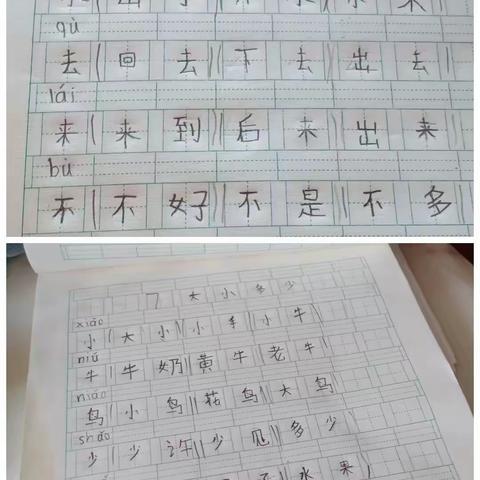 qù
去（回去）（下去）（出去）
lái
来（来到）（后来）（出来）
bù
不（不好）（不是）（不多）
7 大小多少
xiǎo
小（大小）（小手）（小牛）
niú
牛（牛奶）（黄牛）（老牛）
niǎo
鸟（小鸟）（花鸟）（大鸟）
shǎo
少（少许）（少见）（多少）
水果）